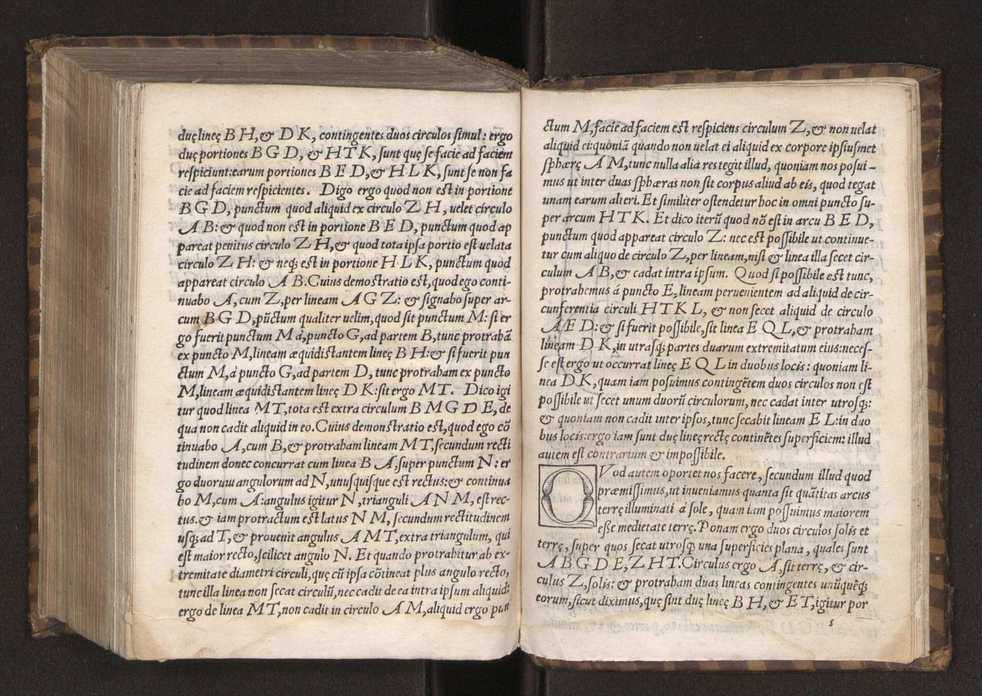 duę lineę B H, & D K, contingentes duos circulos simul: ergo
duę portiones B G D, & H T K, sunt quę se facie ad faciem
respiciunt: earum portiones B E D, & H L K, sunt se non fa
cie ad faciem respicientes. Digo ergo quod non est in portione
B G D, punctum quod aliquid ex circulo Z H, uelet circulo
A B: & quod non est in portione B E D, punctum quod ap
pareat penitus circulo Z H, & quod tota ipsa portio est uelata
circulo Z H: & neq; est in portione H L K, punctum quod
appareat circulo A B. Cuius demõstratio est, quod ego conti-
nuabo A, cum Z, per lineam A G Z: & signabo super ar-
cum B G D, pũctum qualiter uelim, quod sit punctum M: si er
go fuerit punctum M à, puncto G, ad partem B, tunc protrahã
ex puncto M, lineam æquidistantem lineę B H: & si fuerit pun
ctum M, à puncto G, ad partem D, tunc protraham ex puncto
M, lineam æquidistantem lineę D K: sit ergo M T. Dico igi
tur quod linea M T, tota est extra circulum B M G D E, de
qua non cadit aliquid in eo. Cuius demonstratio est, quod ego cõ
tinuabo A, cum B, & protraham lineam M T, secundum recti
tudinem donec concurrat cum linea B A, super punctum N: er
go duorum angulorum ad N, unusquisque est rectus: & continua
bo M, cum A: angulus igitur N, trianguli A N M, est rec-
tus. & iam protractum est latus N M, secundum rectitudinem
usq; ad T, & prouenit angulus A M T, extra triangulum, qui
est maior recto, scilicet angulo N. Et quando protrahitur ab ex-
tremitate diametri circuli, quę cũ ipsa cõtineat plus angulo recto,
tunc illa linea non secat circulũ, nec cadit de ea intra ipsum aliquid:
ergo de linea M T, non cadit in circulo A M, aliquid ergo pun
ctum M, facie ad faciem est respiciens circulum Z, & non uelat
aliquid ei: quoniã quando non uelat ei aliquid ex corpore ipsusmet
sphærę A M, tunc nulla alia res tegit illud, quoniam nos posui-
mus ut inter duas sphæras non sit corpus aliud ab eis, quod tegat
unam earum alteri. Et similiter ostendetur hoc in omni puncto su-
per arcum H T K. Et dico iterũ quod nõ est in arcu B E D,
punctum quod appareat circulo Z: nec est possibile ut continue-
tur cum aliquo de circulo Z, per lineam, nisi & linea illa secet cir-
culum A B, & cadat intra ipsum. Quod si possibile est tunc,
protrahemus à puncto E, lineam peruenientem ad aliquid de cir-
cunferentia circuli H T K L, & non secet aliquid de circulo
A E D: & si fuerit possibile, sit linea E Q L, & protraham
lineam D K, in utrasq; partes duarum extremitatum eius: neces-
se est ergo ut occurrat lineę E Q L in duobus locis: quoniam li-
nea D K, quam iam posuimus contingẽtem duos circulos non est
possibile ut secet unum duorũ circulorum, nec cadat inter utrosq;:
& quoniam non cadit inter ipsos, tunc secabit lineam E L: in duo
bus locis: ergo iam sunt duę lineę rectę continẽtes superficiem: illud
autem est contrarium & impossibile.
QVod autem oportet nos facere, secundum illud quod
præmissimus, ut inueniamus quanta sit quãtitas arcus
terrę illuminati à sole, quam iam possuimus maiorem
esse medietate terrę. Ponam ergo duos circulos solis et
terrę, super quos secat utrosq; una superficies plana, quales sunt
A B G D E, Z H T. Circulus ergo A, sit terrę, & cir-
culus Z, solis: & protraham duas lineas contingentes unũquẽq;
eorum, sicut diximus, quę sint duę lineę B H, & E T, igitur por
s